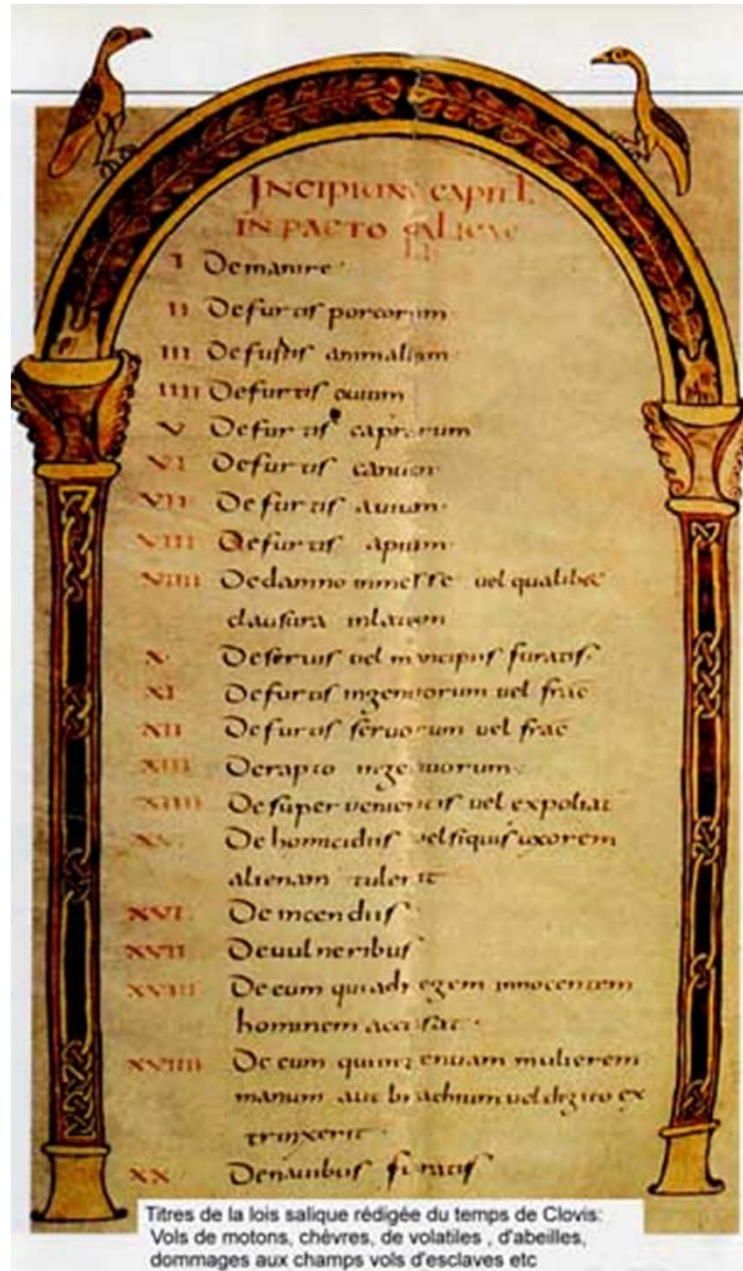 INCIPIUNT CAPITL
IN PACTO SALICAE
I De manire
II De furtis porcorum
III De furtis animalium
IIII De furtis ouium
V De furtis caprarum
VI De furtis canum
VII De furtis auium
VIII De furtis apium
VIIII De damno in messe uel qualibet
clausura
X De seruis uel mancipiis furatis
XI De furtis ingenuorum uel frac
XII De furtis seruorum uel frac
XIII De rapto ingenuorum
XIIII De superuenientis uel expoliat
XV De homicidiis uel si quis uxorem
alienam tulerit
XVI De incendiis
XVII De uulneribus
XVIII De eum qui ad regem innocentem
hominem accusat
XVIIII De eum qui ingenuam mulierem
manum aut brachium uel digito ex
trinxerit
XX De nauibus furatis
Titres de la lois salique rédigée du temps de Clovis:
Vols de motons, chèvres, de volatiles , d'abeilles,
dommages aux champs vols d'esclaves etc